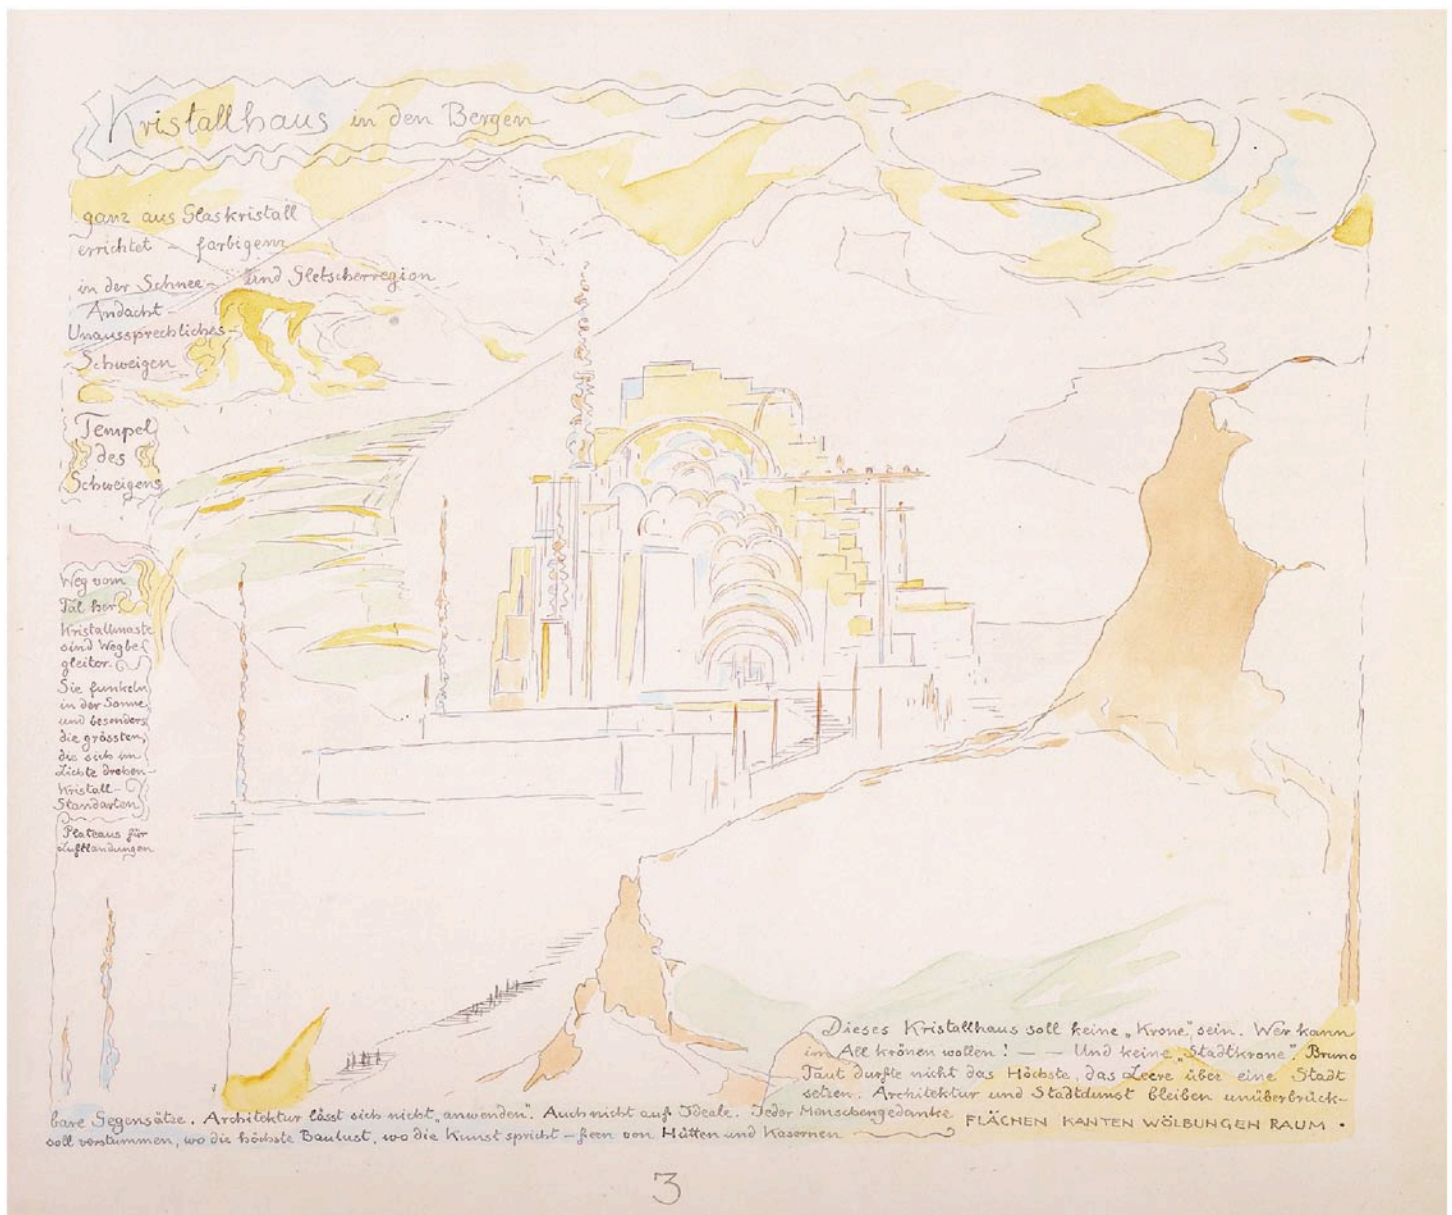 Kristallhaus in den Bergen
ganz aus Glaskristall
errichtet – farbigem
in der Schnee- und Gletscherregion
Andacht –
Unaussprechliches
Schweigen
Tempel
des
Schweigens
Weg vom
Tal her
Kristallmaste
sind Wegbe
gleiter.
Sie funkeln
in der Sonne,
und besonders
die grössten,
die sich im
Lichte drehen –
Kristall-
Standarten
Plateaus für
Luftlandungen
Dieses Kristallhaus soll keine „Krone“ sein. Wer kann
im All krönen wollen! — — Und keine „Stadtkrone“. Bruno
Taut durfte nicht das Höchste, das Leere über eine Stadt
setzen. Architektur und Stadtdunst bleiben unüberbrück-
bare Gegensätze. Architektur lässt sich nicht „anwenden“. Auch nicht auf Ideale. Jeder Menschengedanke
soll verstummen, wo die höchste Baulust, wo die Kunst spricht – fern von Hütten und Kasernen
FLÄCHEN KANTEN WÖLBUNGEN RAUM •
3